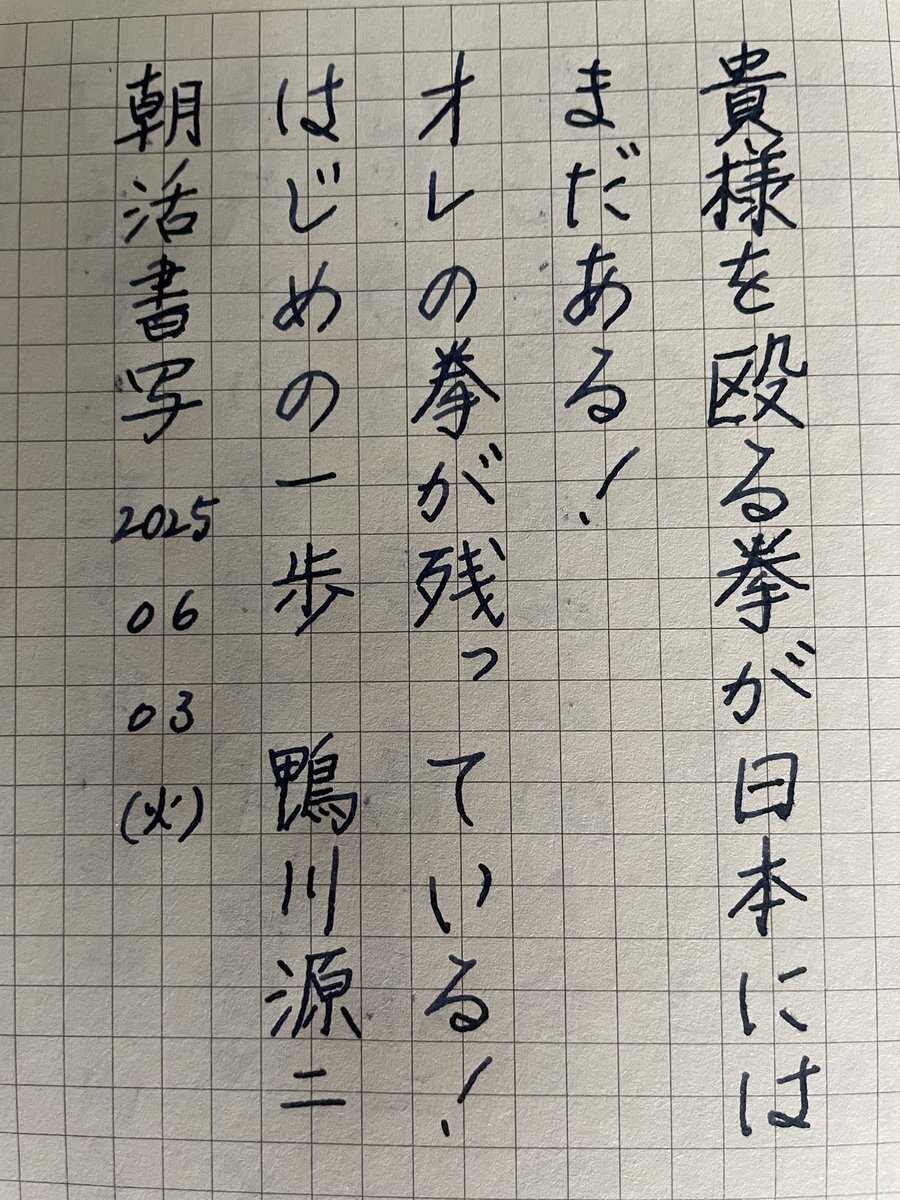 貴様を殴る拳が日本には
まだある!
オレの拳が残っている!
はじめの一歩 鴨川源二
朝活書写 2025 06 03 (火)